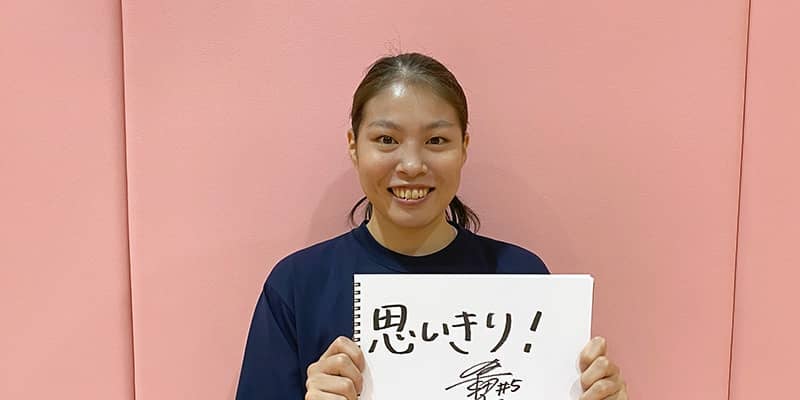 思いきり!
#5